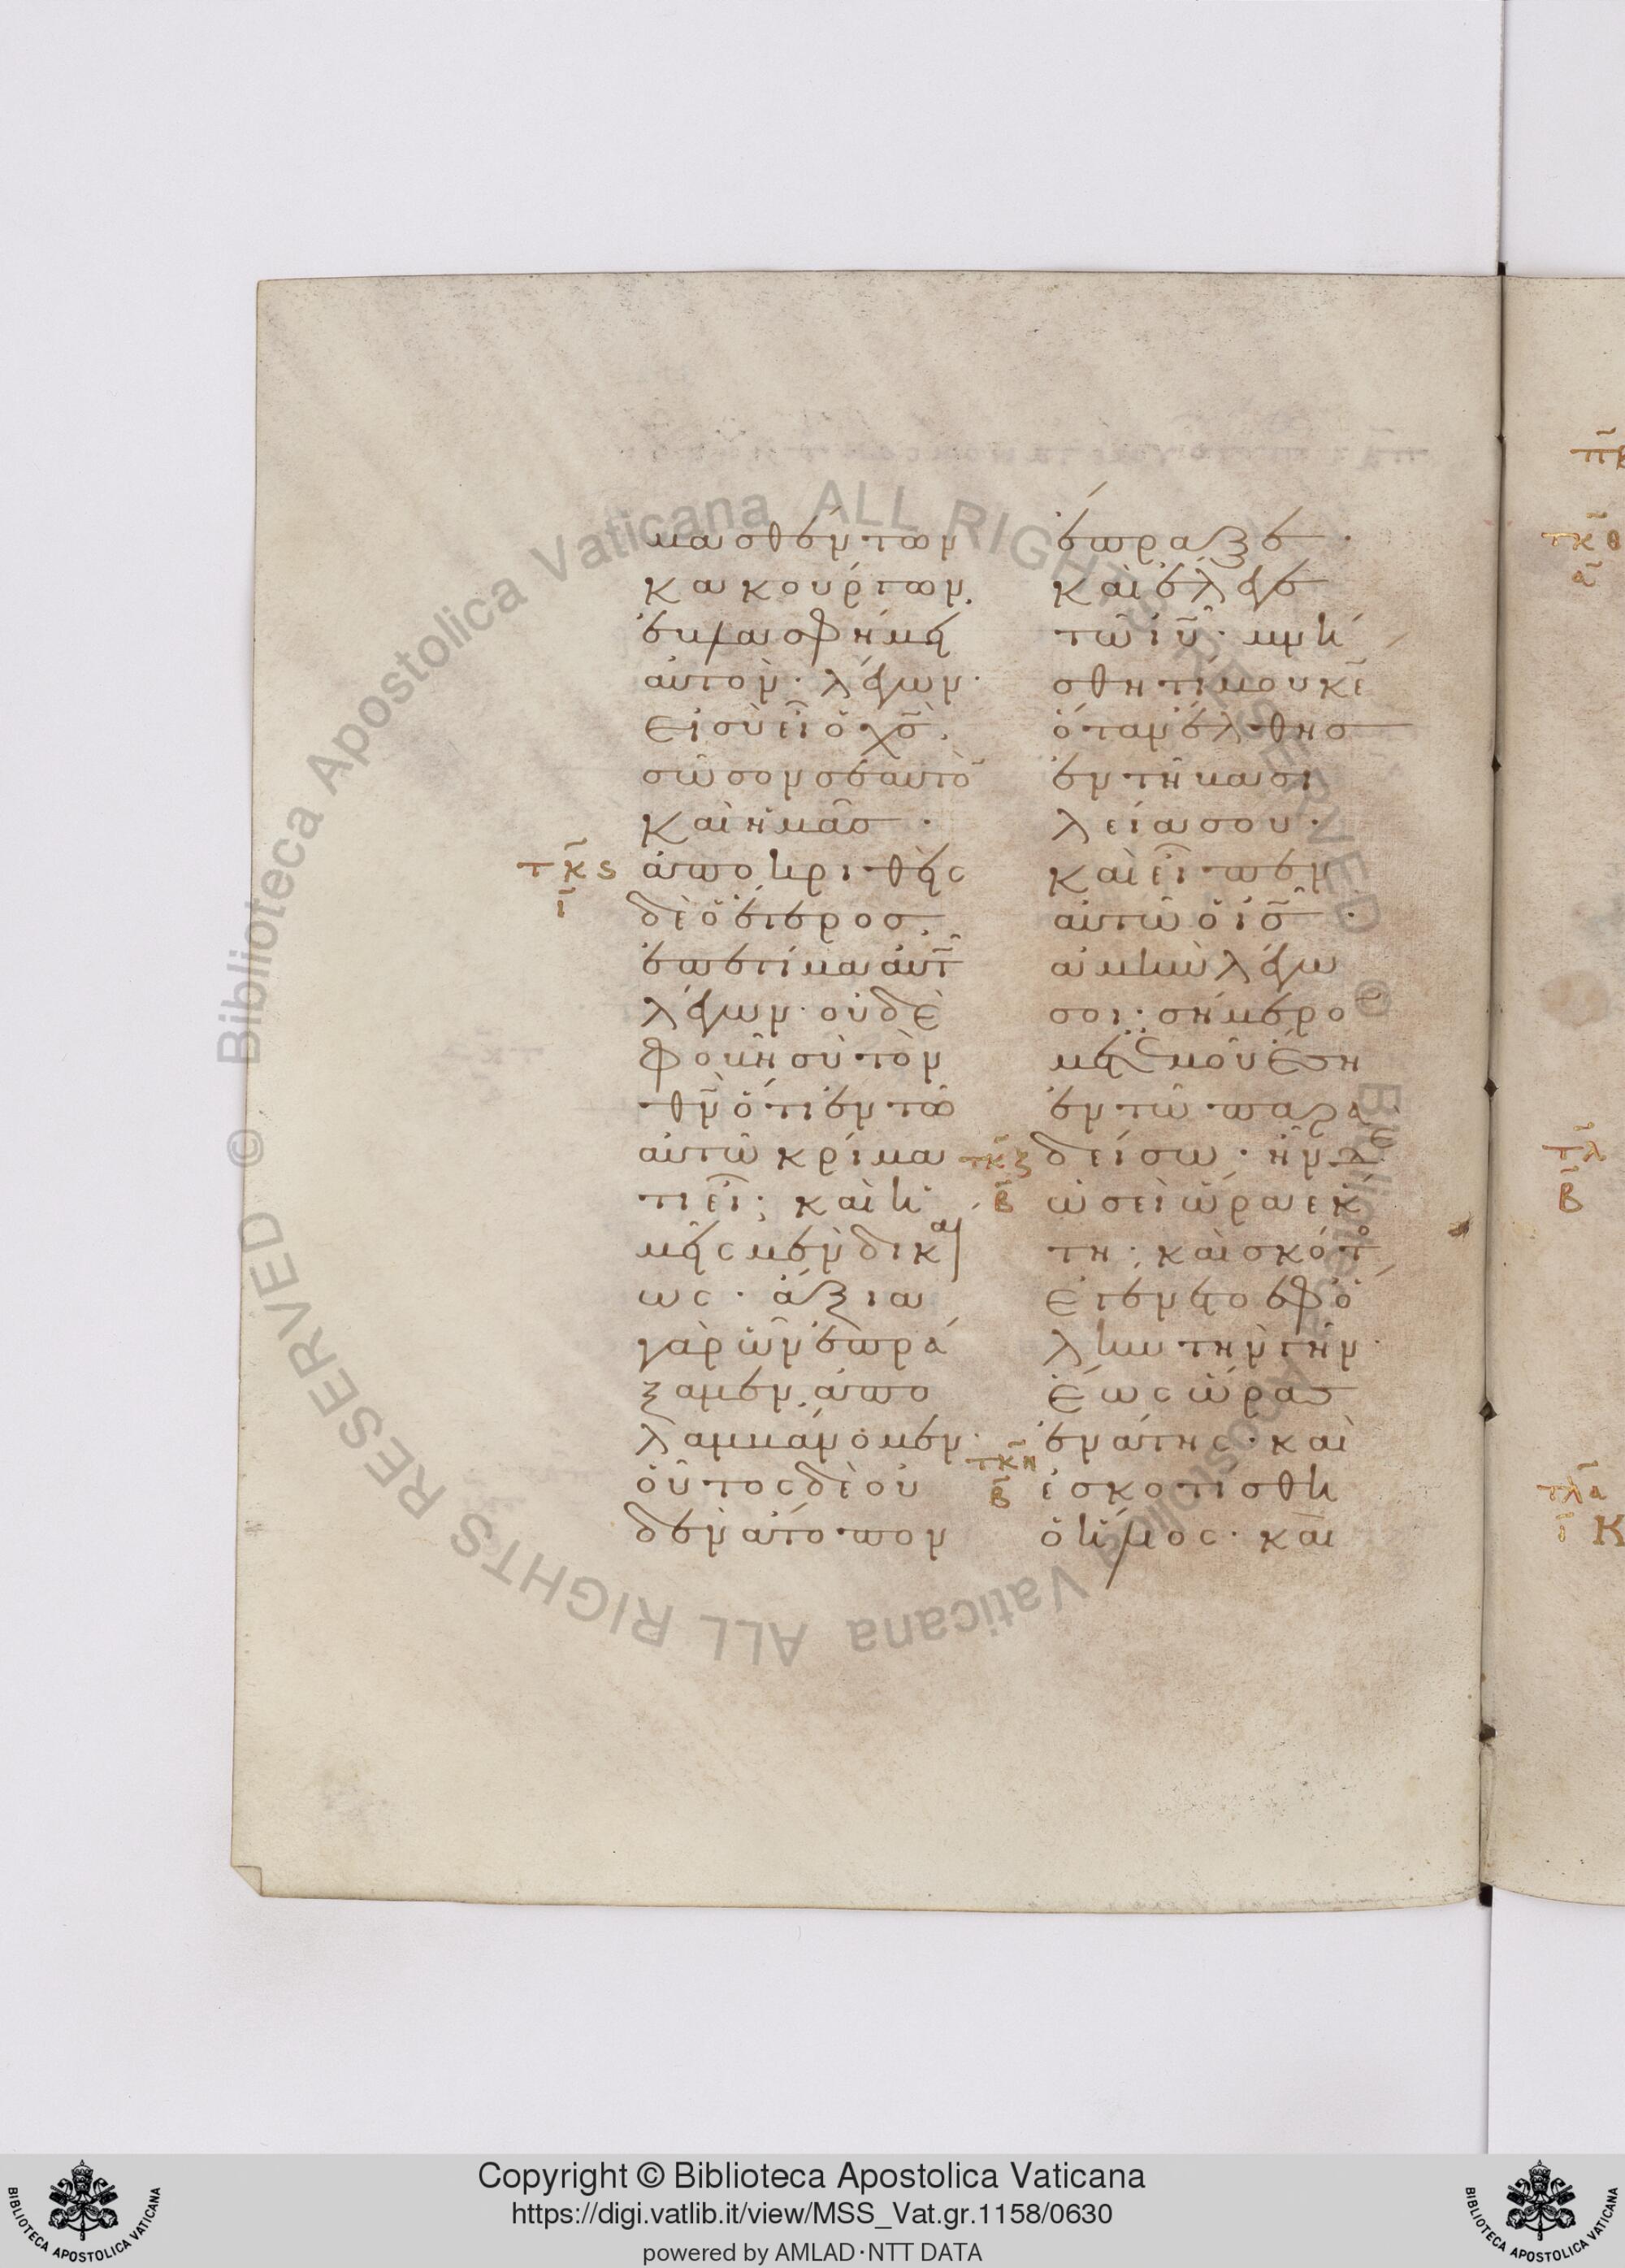 μασθέντων
κακούργων
ἐβλασφήμει
αὐτὸν· λέγων·
Εἰ σὺ εἶ ὁ χ̅σ̅.
σῶσον σεαυτὸ̅
Καὶ ἡμᾶσ·
τκς ἀποκριθεὶς
ι δὲ ὁ ἕτεροσ.
ἐπετίμα αὐτῶ
λέγων· οὐδὲ
φοβῆ σὺ τὸν
θ̅ν̅ ὅτι ἐν τῶ
αὐτῶ κρίμα
τι εἶ; καὶ ἡ
μεῖς μὲν δικαί
ως· ἄξια
γὰρ ὧν ἐπρά
ξαμεν ἀπο
λαμβάνομεν·
οὗτος δὲ οὐ
δὲν ἄτοπον
ἔπραξε·
Καὶ ἔλεγε
τῶ ι̅υ̅· μνή
σθητί μου κ̅ε̅
ὅταν ἔλθησ
ἐν τῆ βασι
λεία σου·
Καὶ εἶπεν
αὐτῶ ὁ ι̅σ̅·
ἀμὴν λέγω
σοι· σήμερο̅
μετ' ἐμοῦ ἔση
ἐν τῶ παρα
τκζ δείσω· ἦν δὲ
β ὡσεὶ ὥρα εκ
τη· καὶ σκότος
Ἐγένετο ἐφ' ὅ
λην τὴν γῆν·
Ἕως ὥρασ
ἐνάτης· καὶ
τκη ἐσκοτίσθη
β ὁ ἥλιος· καὶ
Copyright © Biblioteca Apostolica Vaticana
https://digi.vatlib.it/view/MSS_Vat.gr.1158/0630
powered by AMLAD·NTT DATA
BIBLIOTECA APOSTOLICA VATICANA
BIBLIOTECA APOSTOLICA VATICANA
© Biblioteca Apostolica Vaticana ALL RIGHTS RESERVED
© Biblioteca Apostolica Vaticana ALL RIGHTS RESERVED